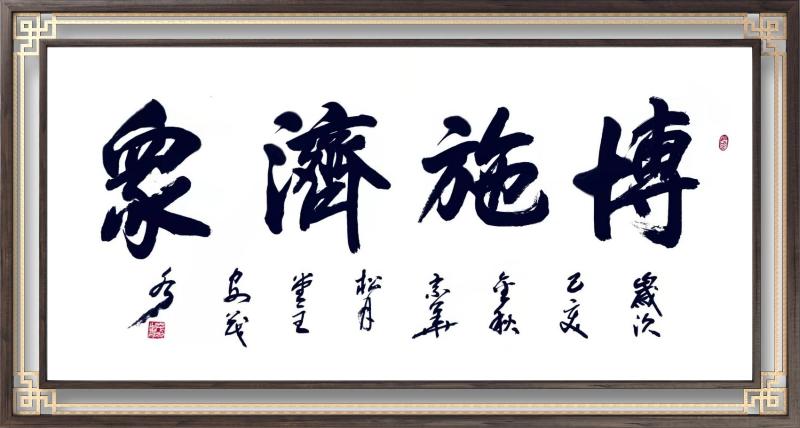 博施濟衆
歲次
己亥
金秋
京華
松月
堂主